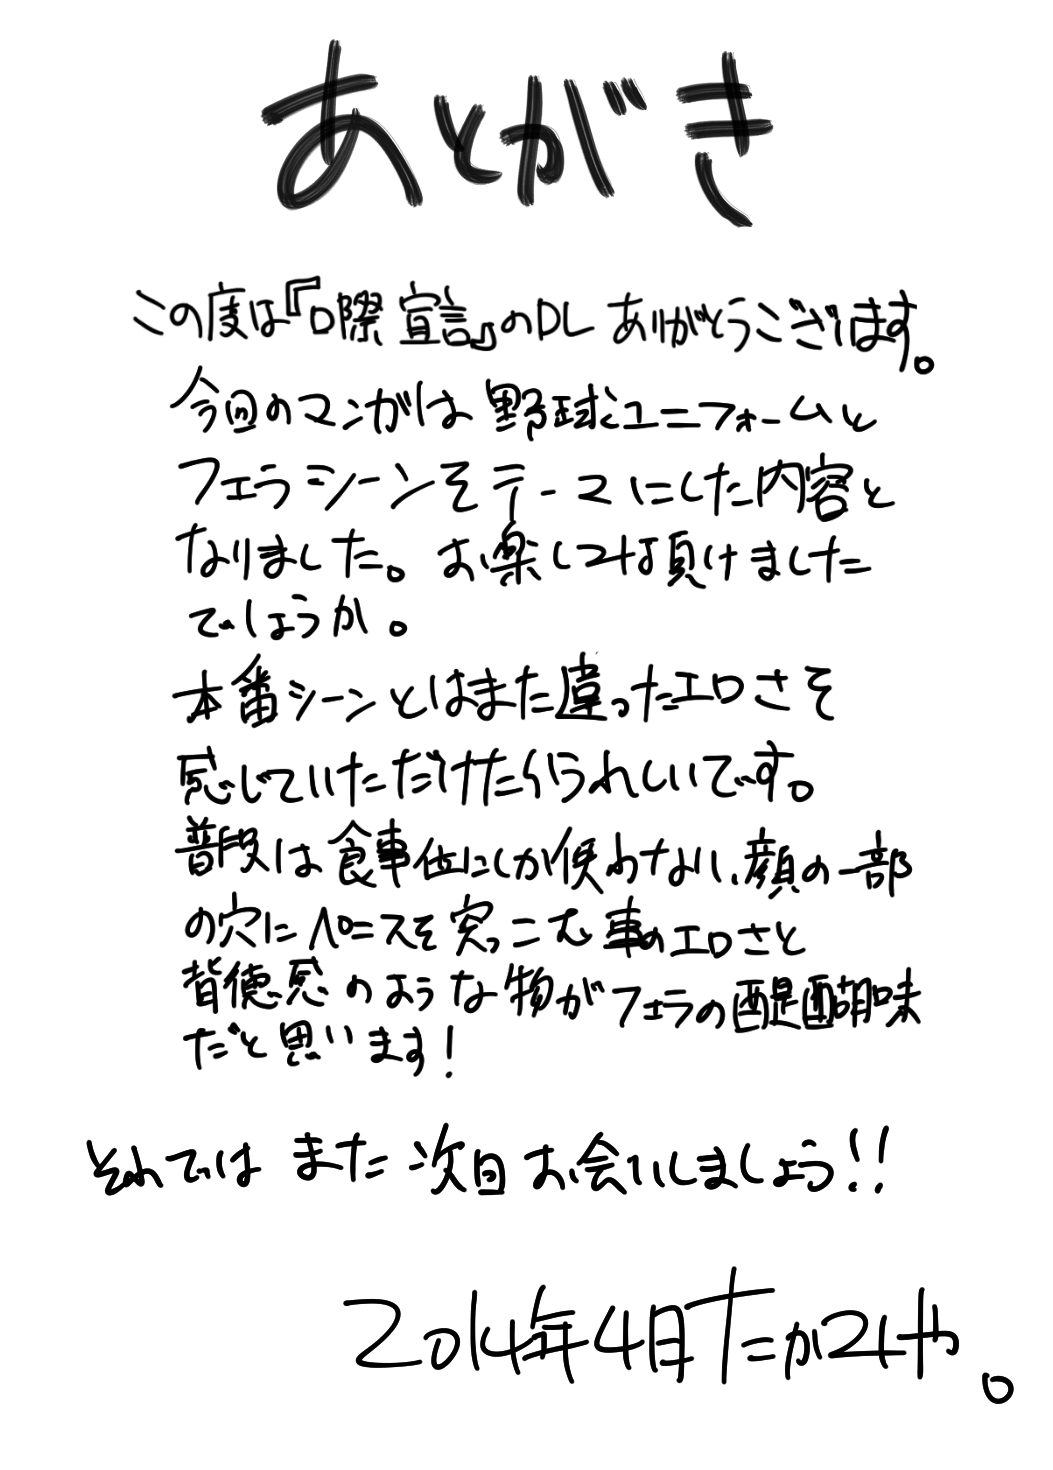 あとがき
この度は『口際宣言』のDLありがとうございます。
今回のマンガは野球ユニフォームと
フェラシーンをテーマにした内容と
なりました。お楽しみ頂けました
でしょうか。
本番シーンとはまた違ったエロさを
感じていただけたらうれしいです。
普段は食事位にしか使わない、顔の一部
の穴にペニスを突っこむ事のエロさと
背徳感のような物がフェラの醍醐味
だと思います！
それでは また 次回 お会いしましょう!!
2014年4月 たかみや。